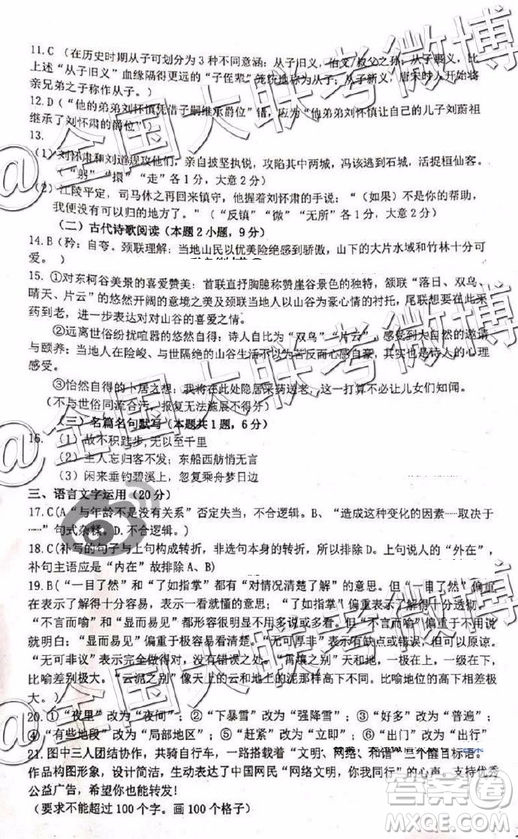 11.C（在历史时期从子可划分为3种不同意涵：从子旧义，伯父/叔父之孙；从子衰义，比
上述“从子旧义”血缘隔得更远的“子侄辈”统统
兄弟之子称作从子。）
12.D（“他的弟弟刘怀慎凭借子嗣继承爵位”错，应为（他的弟弟刘怀慎让自己的儿子刘蔚祖
继承了刘怀肃的爵位”）
13.
（1）刘怀肃和刘道规攻打他们，亲自披坚执锐，攻陷其中两城，冯该逃到石城，活捉桓仙客。
（“躬”“擐”“走”各1分，大意2分）
（2）江陵平定，司马休之再回来镇守，他握着刘怀肃的手说：“（如果）不是你
们，我就没有可以归的地方了。”（“反镇”“微”“无所”各1分，大意2分）
（二）古代诗歌阅读（本题2小题，9分）
14.B（矜：自夸、颈联理解：当地山民以优美险绝感到骄傲，山下的大片水域和竹林十分可
爱。）
15.①对东柯谷美景的喜爱赞美：首联直抒胸臆称赞崖谷景色的独特，颔联“落日、双鸟、
晴天、片云”的悠然开阔的意境之美及颈联当地山人以谷为豪心情的衬托，尾联表达想来采
药到老，进而表达对山谷的喜爱之情。
②远离世俗纷扰喧嚣的悠然安宁：诗人自比为“双鸟”“片云”，享受感受到大自然的邀请
与颐养；当地人在险峻、与世隔绝的山谷生活历代不息并引以为豪，反映出超越世俗的心理感
受。
（3）怡然自得的卜居之想：我年事已高，希望在此处隐居采药送老，这一打算不必让儿女们知闻。
（不与世俗同流合污，报复无法实现也可）
（三）名篇名句默写（本题共1题，6分）
16.（1）故不积跬步，无以至千里
（2）主人忘归客不发；东船西舫悄无言
（3）闲来垂钓碧溪上，忽复乘舟梦日边
三、语言文字运用（20分）
17.C(A“与年龄不是没有关系”否定失当，不合逻辑。B、“造成这种变化的因素……取决于
……”句式杂糅。D.不合逻辑。)
18.C(补写的句子与上句构成转折，并非本句构成转折，所以排除D。上句说人的“外在”，
补句主语应是“内在”故排除A、B)
19.B(“一目了然”和“了如指掌”都有“对情况清楚了解”的意思。但“一目了然”偏重
看一眼就清楚，“了如指掌”偏重了解得十分容易。
“不言而喻”和“显而易见”偏重于情况或道理很明显。但“不言而喻”偏重于不用说
就明白：“显而易见”偏重于极容易看清楚。“无可厚非”表示虽有缺点或错误，但可以原谅，
“无可非议”表示完全做得对，没有错误。“霄壤之别”像天和地那样高下相隔，比喻
差别极大。“云泥之别”像天上的云和地上的泥那样高下不同。比喻地位的高下相差极
大。
20.①“夜里”改为“夜间”；②“下暴雪”改为“强降雪”；③“好多”改为“普遍”；
④“有些地段”改为“局部地区”；⑤“立马”改为“立即”；⑥“出门”改为“出行”
21.图中三人团结协作，共骑自行车，一路搭载着“文明、
作品构图形象、设计简洁，生动表达了中国网民“网络文明，你我共行”的心声。支持优秀
公益广告，希望你也能转发！
（要求不能超过100个字。画100个格子）
@全国大联考微博
@全国大联考微博
@全国大联考微博